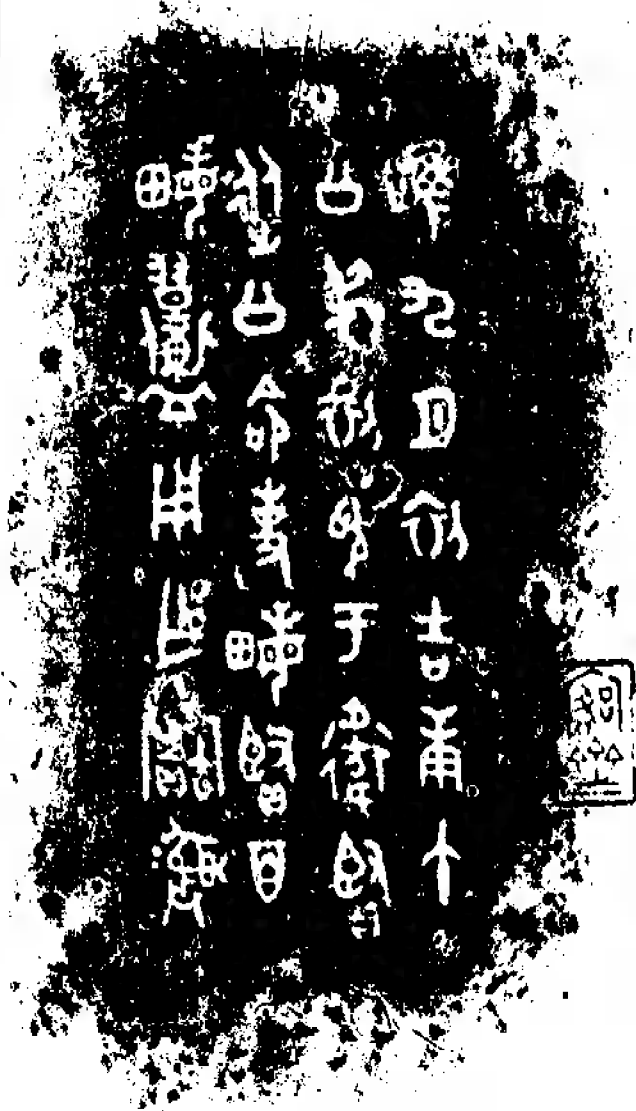 唯九月初吉庚午
公叔初見于衛賢
從公命事畮賢百
畮糧用乍寶彝